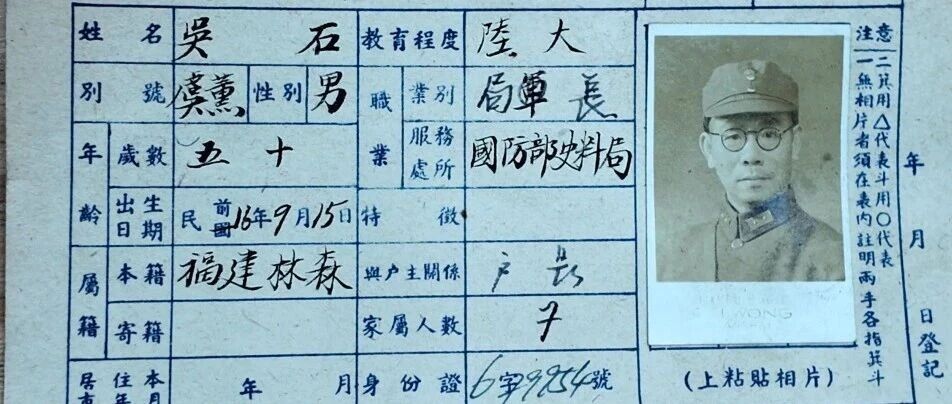 姓名 吳石 教育程度 陸大
別號 虞薰 性別 男 職業 業別 局軍長
年齡 歲數 五十 服務處所 國防部史料局
出生日期 民國前16年9月15日 特徵
屬籍 本籍 福建林森 與户主關係 户長
寄籍 家屬人數 7
年 月 身份證 6字9954號
(上粘貼相片)
WONG
注意
一無相片者須在表內註明兩手各指箕斗
二箕用△代表斗用○代表
年 月 日登記